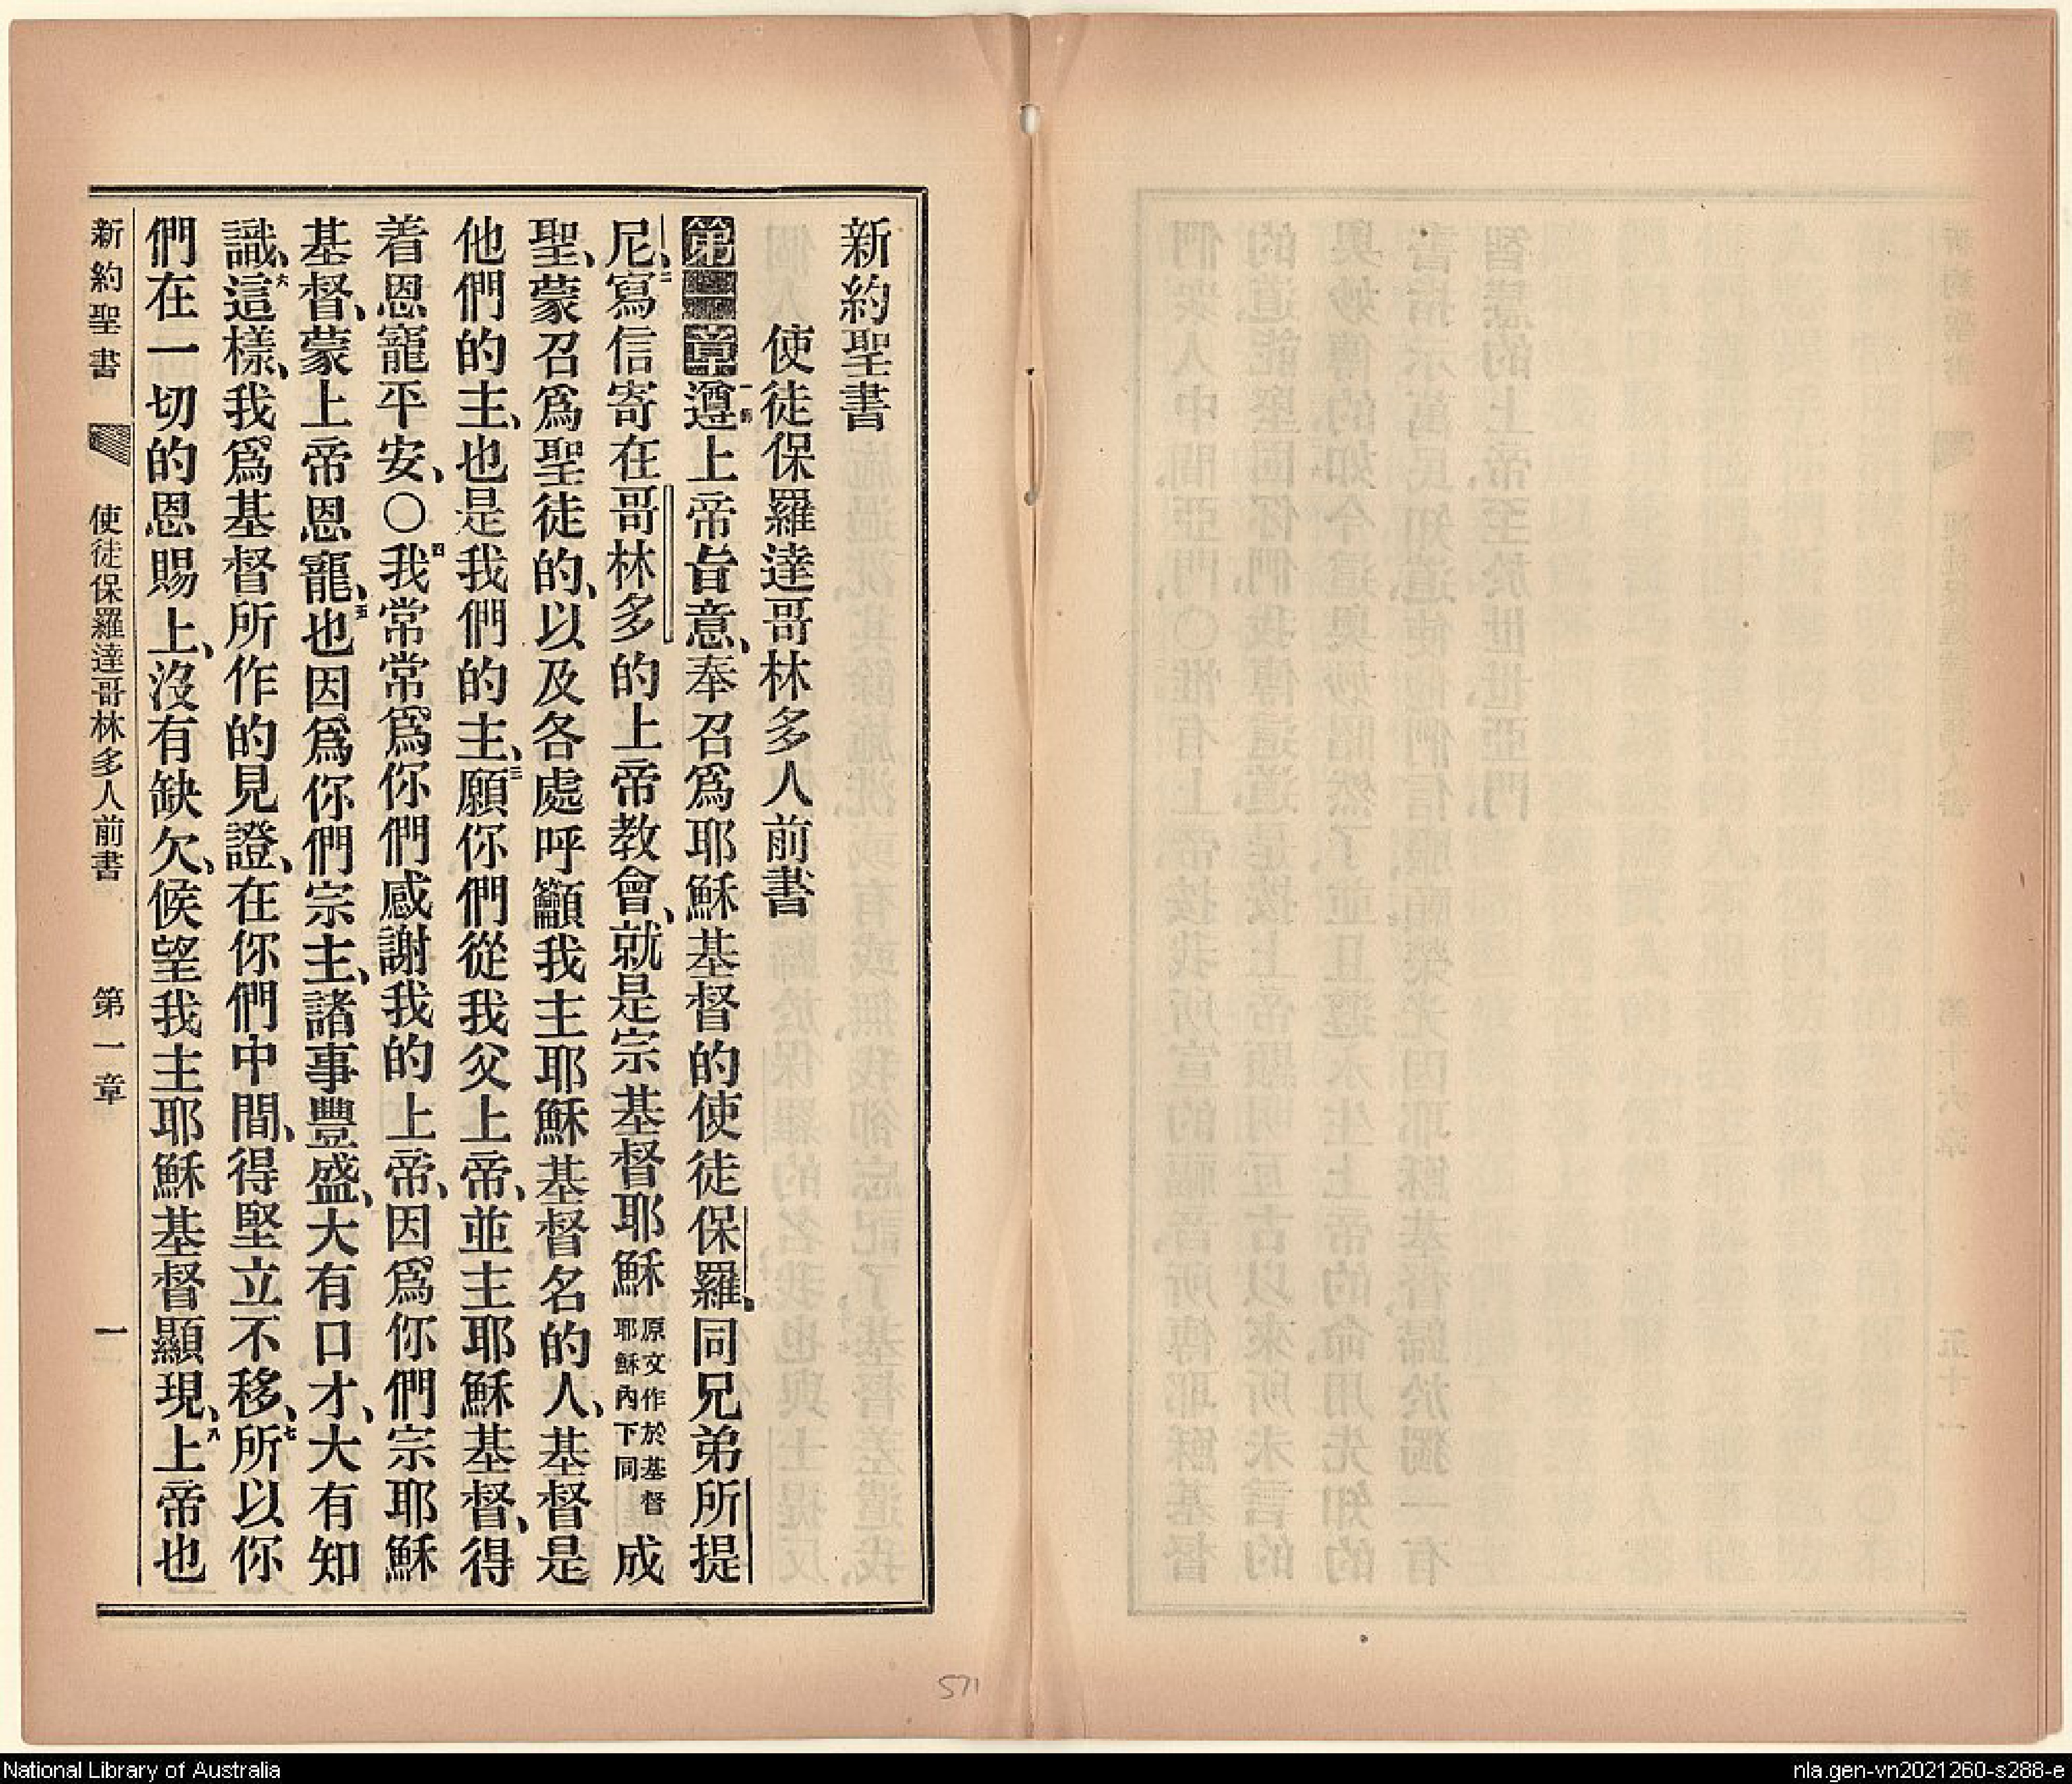 新約聖書
使徒保羅達哥林多人前書
第一章一節遵上帝旨意、奉召爲耶穌基督的使徒保羅、同兄弟所提
尼、二寫信寄在哥林多的上帝教會、就是宗基督耶穌原文作於基督耶穌內下同成
聖、蒙召爲聖徒的、以及各處呼籲我主耶穌基督名的人、基督是
他們的主、也是我們的主、三願你們從我父上帝、並主耶穌基督、得
着恩寵平安、〇四我常常爲你們感謝我的上帝、因爲你們宗耶穌
基督、蒙上帝恩寵、五也因爲你們宗主、諸事豐盛、大有口才、大有知
識、六這樣、我爲基督所作的見證、在你們中間、得堅立不移、七所以你
們在一切的恩賜上、沒有缺欠、候望我主耶穌基督顯現、八上帝也
新約聖書 使徒保羅達哥林多人前書 第一章 一
571
National Library of Australia
nla.gen-vn2021260-s288-e